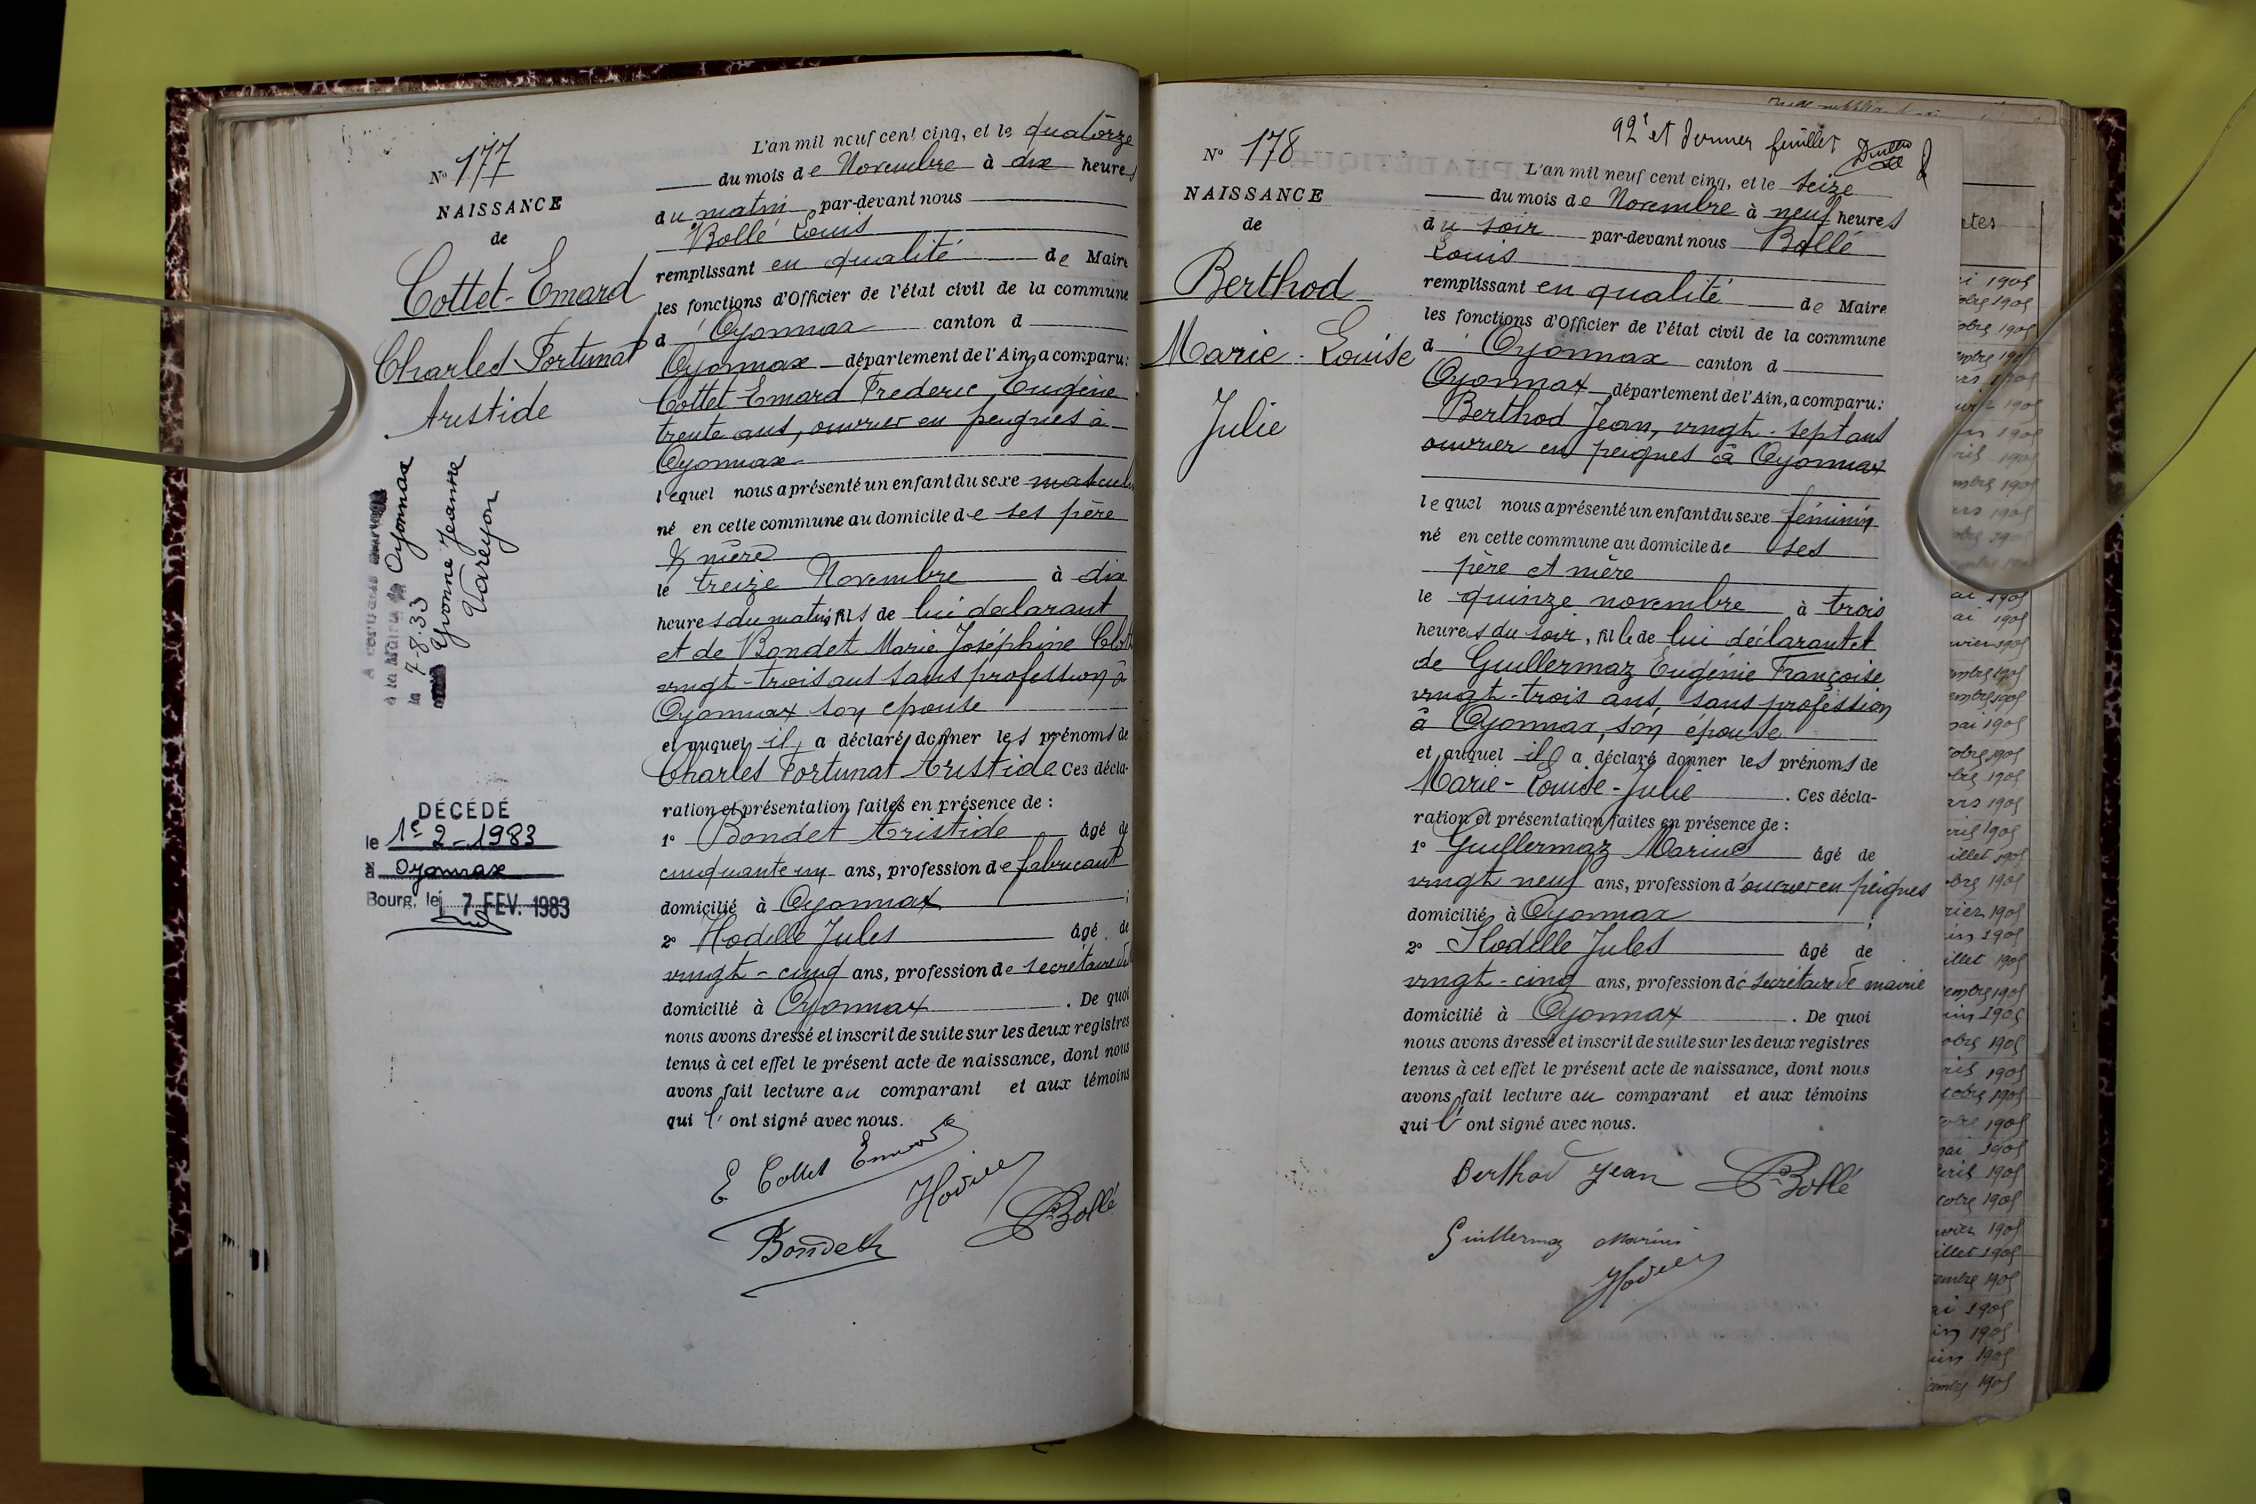 N° 177
NAISSANCE
de
Cottet-Emard
Charles Fortunat
Aristide
à la Mairie de Oyonnax
le 7-8-33
Yvonne Jeanne
Vareyon
DÉCÉDÉ
le 1er 2-1983
à Oyonnax
Bourg, le 7 FEV. 1983
L'an mil neuf cent cinq, et le quatorze
du mois de Novembre à dix heures
du matin par-devant nous
Bollé Louis
remplissant en qualité de Maire
les fonctions d'Officier de l'état civil de la commune
d'Oyonnax canton d
Oyonnax département de l'Ain, a comparu:
Cottet Emard Frederic Eugène
trente ans, ouvrier en peignes à
Oyonnax
lequel nous a présenté un enfant du sexe masculin
né en cette commune au domicile de ses père
& mère
le treize Novembre à dix
heures du matin, fils de lui déclarant
et de Bondet Marie Joséphine
vingt-trois ans sans profession à
Oyonnax son épouse
et auquel il a déclaré donner les prénoms de
Charles Fortunat Aristide Ces décla-
ration et présentation faites en présence de :
1° Bondet Aristide âgé de
cinquante un ans, profession de fabricant
domicilié à Oyonnax ;
2° Hodille Jules âgé de
vingt-cinq ans, profession de secrétaire de
domicilié à Oyonnax . De quoi
nous avons dressé et inscrit de suite sur les deux registres
tenus à cet effet le présent acte de naissance, dont nous
avons fait lecture au comparant et aux témoins
qui l' ont signé avec nous.
E Cottet Emard
Hodille
Bollé
Bondet
92e et dernier feuillet
N° 178
NAISSANCE
de
Berthod
Marie-Louise
Julie
L'an mil neuf cent cinq, et le seize
du mois de Novembre à neuf heures
du soir par-devant nous Bollé
Louis
remplissant en qualité de Maire
les fonctions d'Officier de l'état civil de la commune
d'Oyonnax canton d
Oyonnax département de l'Ain, a comparu:
Berthod Jean, vingt-sept ans
ouvrier en peignes à Oyonnax
lequel nous a présenté un enfant du sexe féminin
né en cette commune au domicile de ses
père et mère
le quinze novembre à trois
heures du soir, fille de lui déclarant et
de Guillermaz Eugénie Françoise
vingt-trois ans, sans profession
à Oyonnax, son épouse
et auquel il a déclaré donner les prénoms de
Marie-Louise-Julie . Ces décla-
ration et présentation faites en présence de :
1° Guillermaz Marius âgé de
vingt neuf ans, profession d'ouvrier en peignes
domicilié à Oyonnax ;
2° Hodille Jules âgé de
vingt-cinq ans, profession de secrétaire de mairie
domicilié à Oyonnax . De quoi
nous avons dressé et inscrit de suite sur les deux registres
tenus à cet effet le présent acte de naissance, dont nous
avons fait lecture au comparant et aux témoins
qui l' ont signé avec nous.
Berthod Jean Bollé
Guillermaz Marius
Hodille